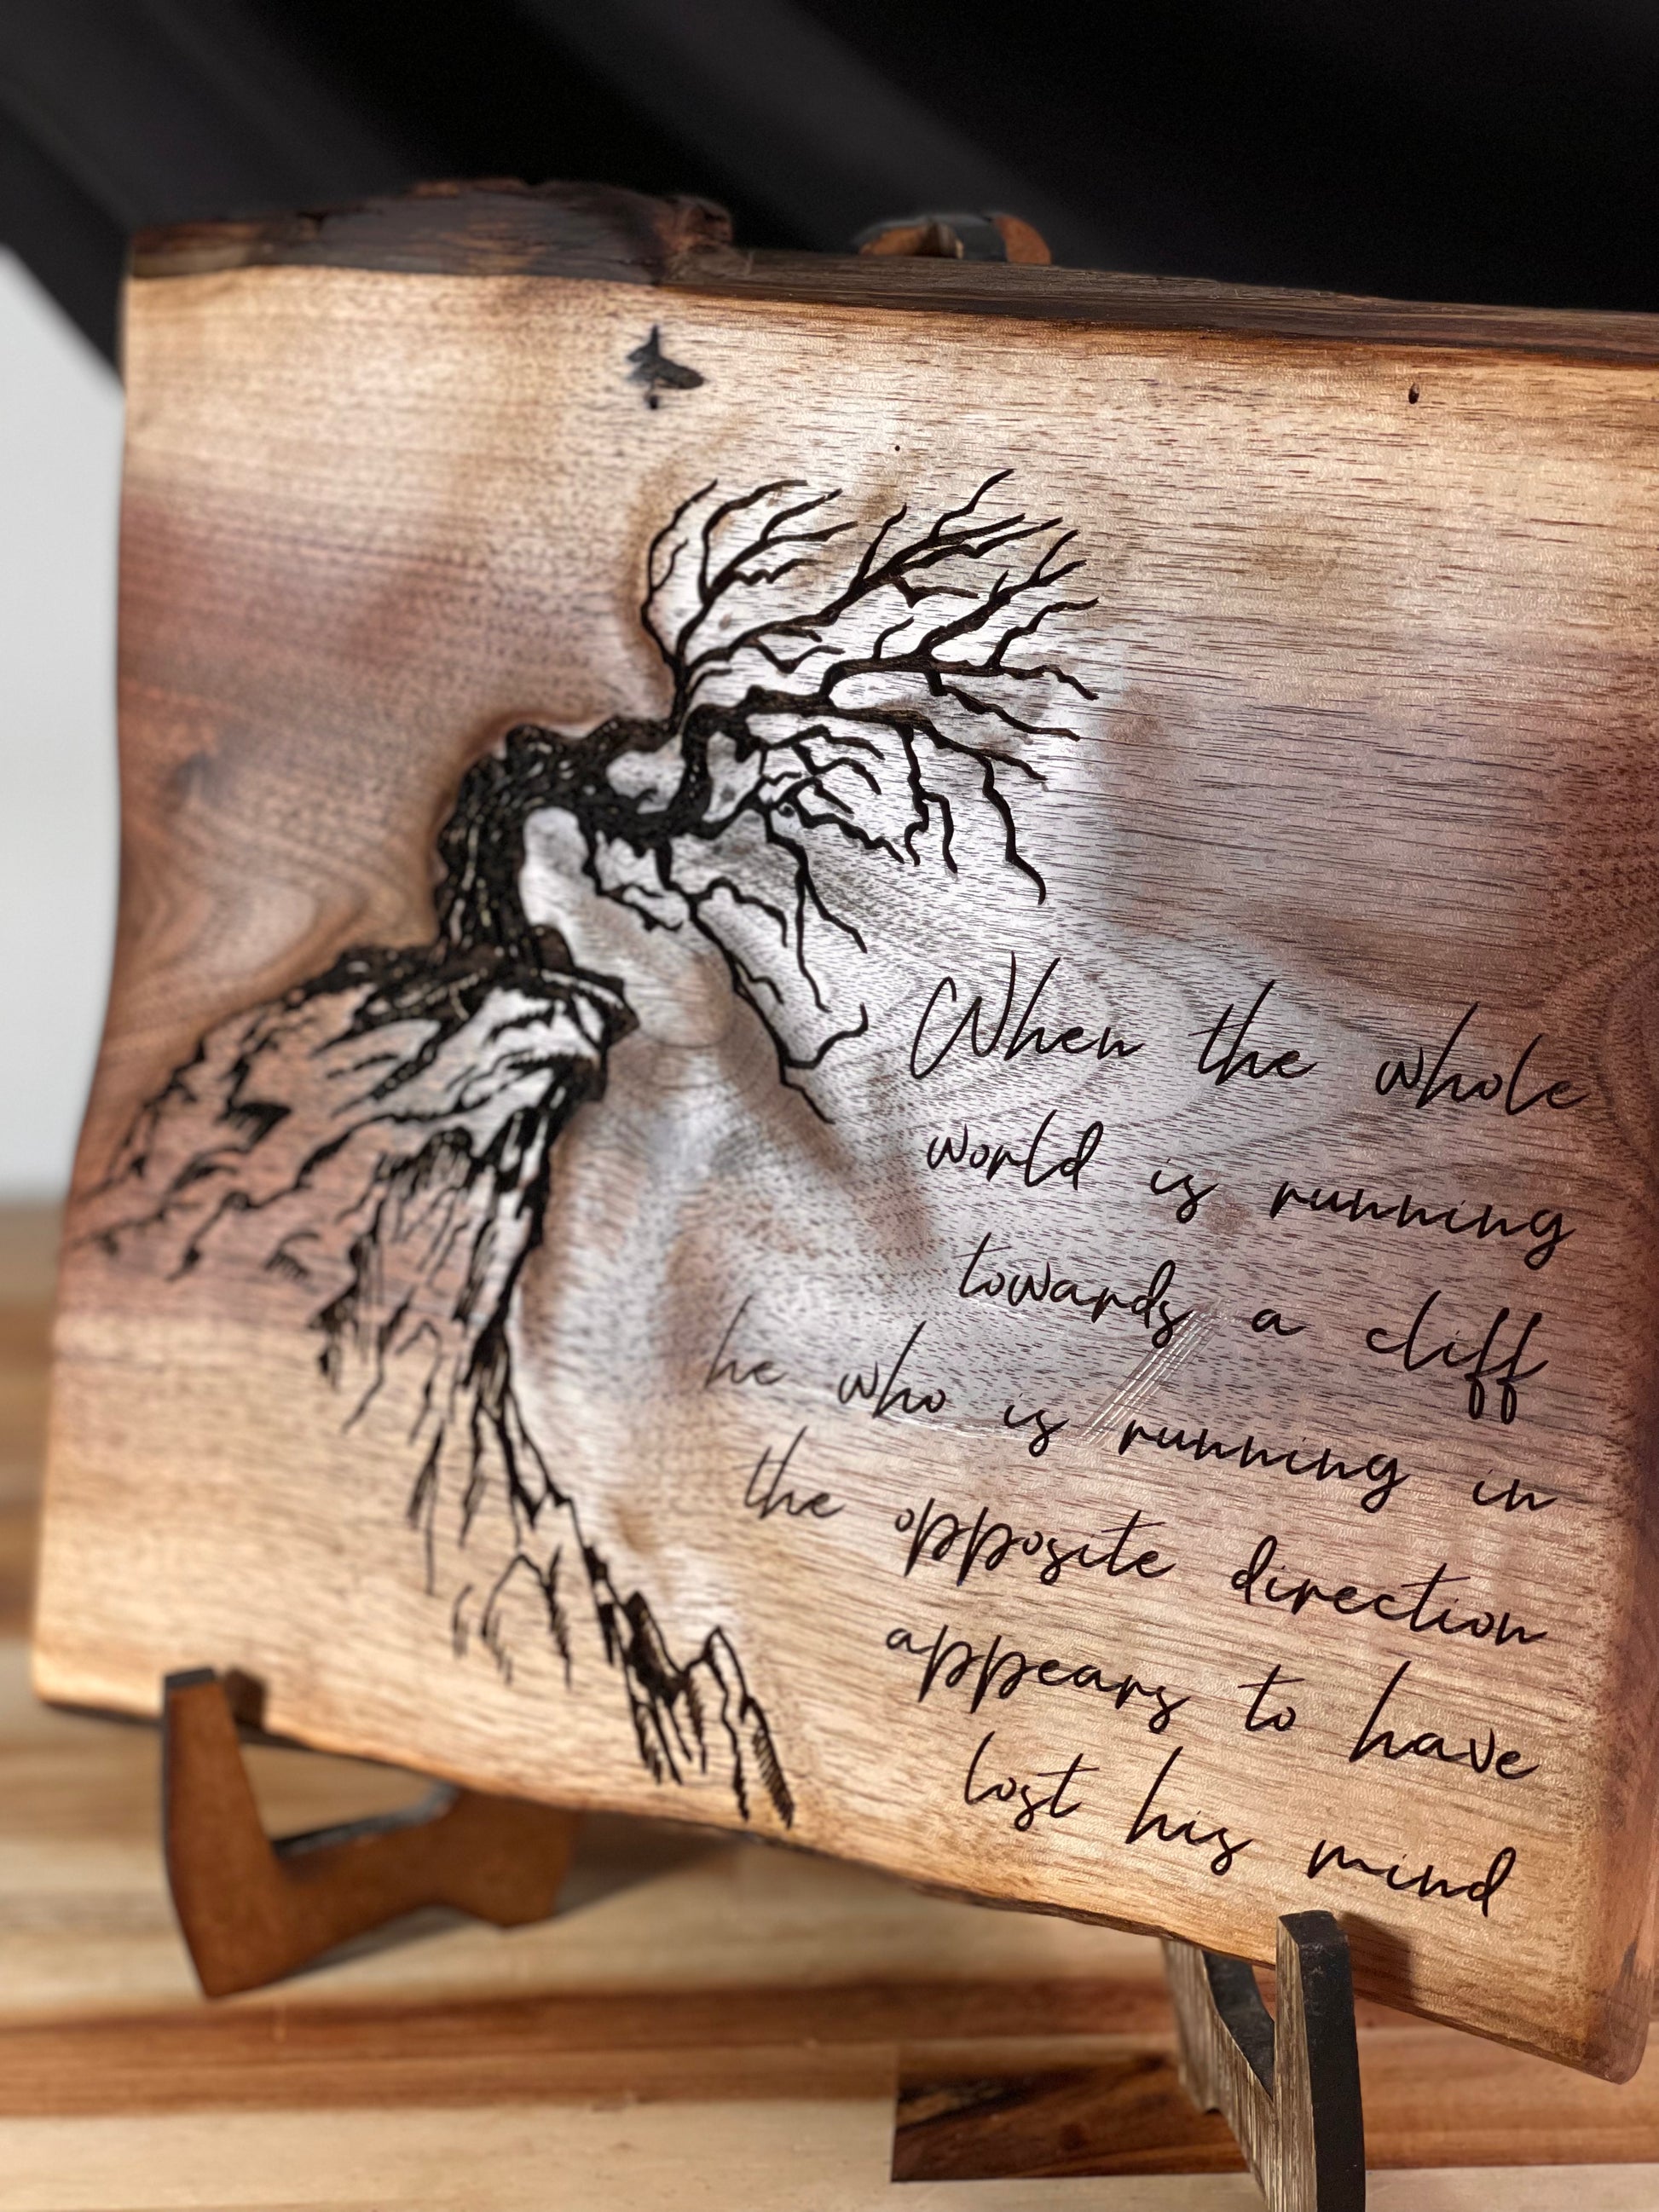 When the whole
world is running
towards a cliff
he who is running in
the opposite direction
appears to have
lost his mind